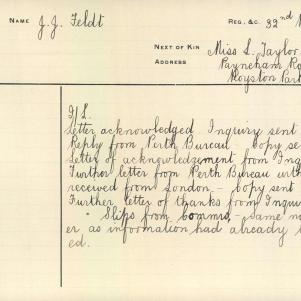 NAME J. J. Feldt
REG. &C. 32nd
NEXT OF KIN Miss L. Taylor
ADDRESS Payneham Ro
Royston Park
I/L.
Letter acknowledged Inquiry sent
Reply from Perth Bureau - Copy se
Letter of acknowledgement from Inq
Further letter from Perth Bureau
received from London - copy sent
Further letter of thanks from Inqui
" Slips from Commrs. - same
er as information had already
ed.